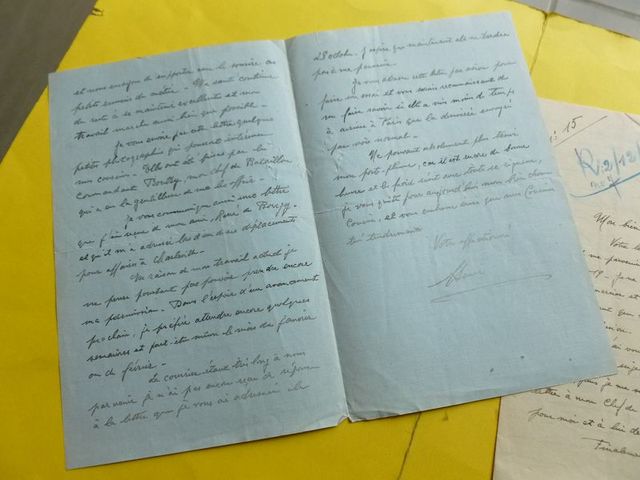 et nous enseigne à supporter avec le sourire les
petits ennuis du métier. Ma santé continue
du reste à se maintenir excellente et mon
travail marche aussi bien que possible.
Je vous envoie par cette lettre quelques
petites photographies qui pourront intéresser
mon cousin. Elles ont été prises par le
Commandant mon chef de Bataillon
qui a eu la gentillesse de me les offrir.
Je vous communique aussi une lettre
que j'ai reçue de mon ami, René de
et qu'il m'a adressée lors d'un de ses déplacements
pour affaires à
En raison de mon travail actuel je
ne pense pourtant pas pouvoir prendre encore
ma permission. Dans l'espoir d'un avancement
prochain, je préfère attendre encore quelques
semaines et peut-être même le mois de Janvier
ou de février.
Le courrier étant très long à nous
parvenir je n'ai pas encore reçu de réponse
à la lettre que je vous ai adressée le
28 octobre. J'espère que maintenant elle ne tardera
pas à me parvenir.
Je vous adresse cette lettre par avion pour
faire un essai et vous serais reconnaissant de
me faire savoir si elle a mis moins de temps
à arriver à Paris que la dernière envoyée
par voie normale.
Ne pouvant absolument plus tenir
mon porte-plume, car il est encore de bonne
heure et le froid suit une forte
je vous quitte pour aujourd'hui mon bien chère
Cousine, et vous embrasse ainsi que mon Cousin
très tendrement.
Votre affectionné
n° 15
R 2/12/
Mon bien
ne parvenir
que
je me
lettre à mon Chef de
pour moi et à lui de